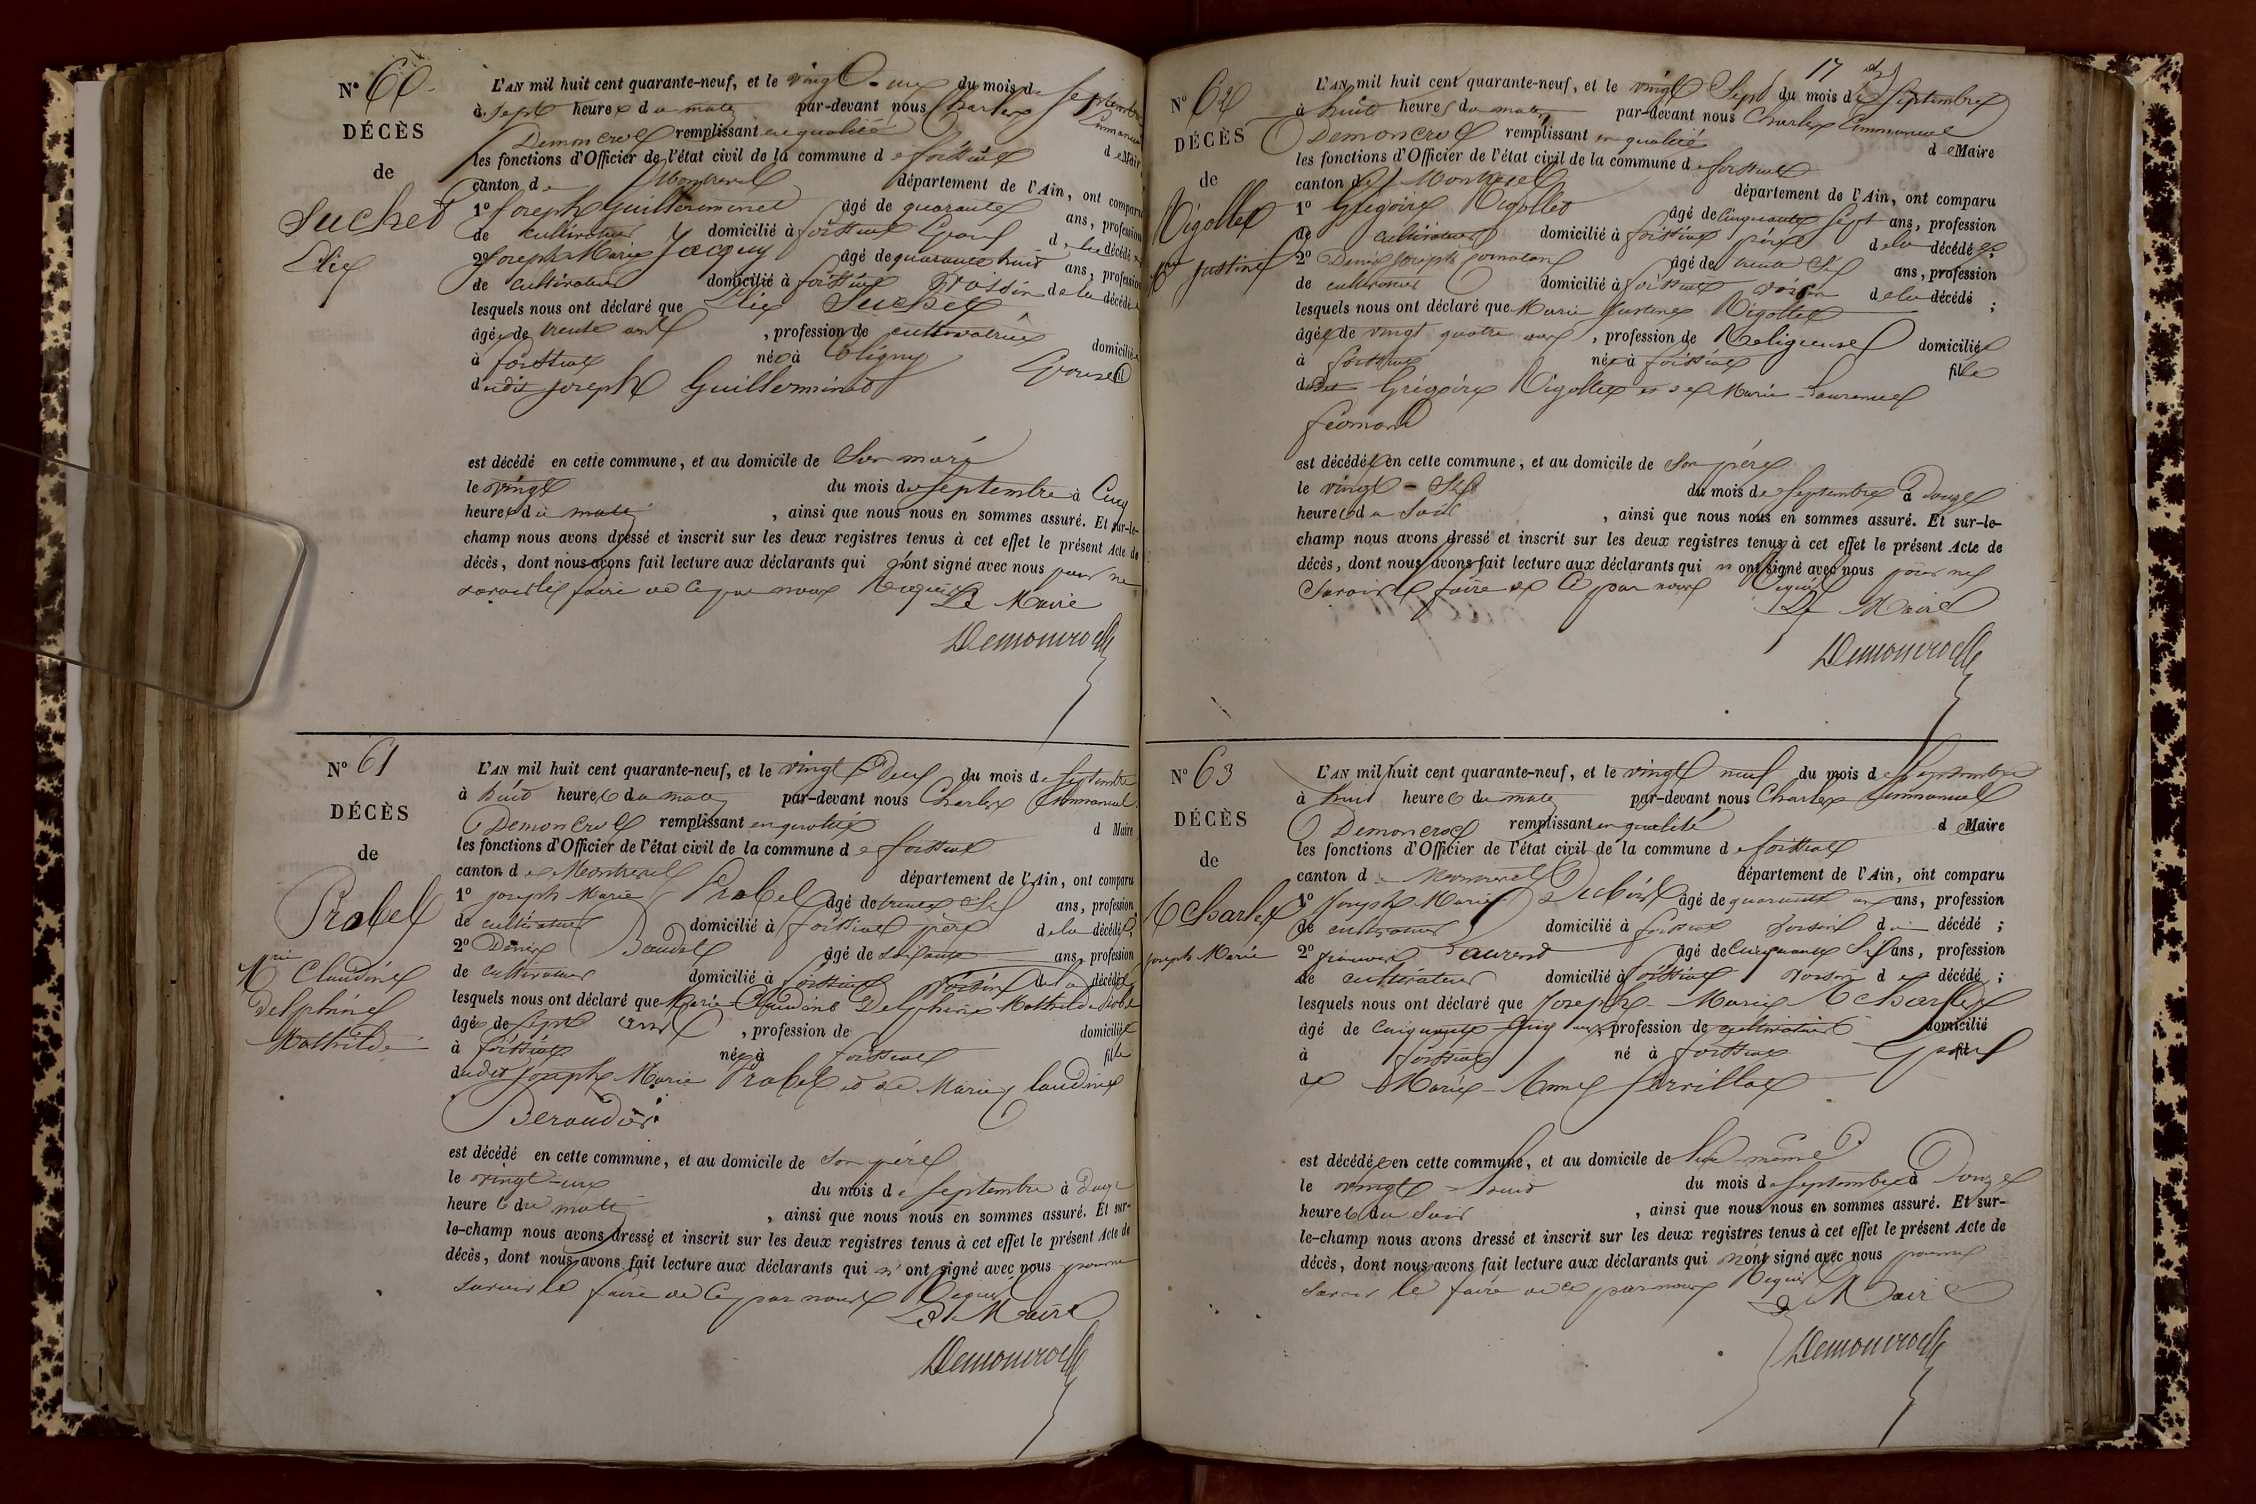 N° 60
DÉCÈS
de
Suchet
Elie
L'AN mil huit cent quarante-neuf, et le vingt-un du mois de Septembre
à Sept heures du matin par-devant nous Charles Emmanuel
Demoncrocel remplissant en qualité de Maire
les fonctions d'Officier de l'état civil de la commune de foissiat
canton de Montrevel département de l'Ain, ont comparu
1° Joseph Guillerminet âgé de quarante ans, profession
de cultivateur domicilié à foissiat Epoux de la décédée
2° Joseph Marie Jacquy âgé de quarante huit ans, profession
de cultivateur domicilié à foissiat Voisin de la décédée
lesquels nous ont déclaré que Elie Suchet
âgée de trente ans , profession de cultivatrice domiciliée
à foissiat née à Coligny Epouse
dudit Joseph Guillerminet
est décédé en cette commune, et au domicile de Son mari
le vingt du mois de Septembre à Cinq
heures du matin , ainsi que nous nous en sommes assuré. Et sur-le-
champ nous avons dressé et inscrit sur les deux registres tenus à cet effet le présent Acte de
décès, dont nous avons fait lecture aux déclarants qui n'ont signé avec nous pour ne
savoir le faire de ce par nous Requis
Le Maire
Demoncrocel
N° 61
DÉCÈS
de
Probel
Mrie Claudine
Delphine
Mathilde
L'AN mil huit cent quarante-neuf, et le vingt Deux du mois de Septembre
à huit heures du matin par-devant nous Charles Emmanuel
Demoncrocel remplissant en qualité d Maire
les fonctions d'Officier de l'état civil de la commune de foissiat
canton de Montrevel département de l'Ain, ont comparu
1° Joseph Marie Probel âgé de trente Six ans, profession
de cultivateur domicilié à foissiat père de la décédée;
2° Denis Baudet âgé de Soixante ans, profession
de cultivateur domicilié à foissiat Voisin de la décédée
lesquels nous ont déclaré que Marie Claudine Delphine Mathilde Probel
âgée de Sept ans , profession de domiciliée
à foissiat née à foissiat fille
dudit Joseph Marie Probel et de Marie Claudine
Beraudier
est décédé en cette commune, et au domicile de Son père
le vingt-un du mois de Septembre à Onze
heures du matin , ainsi que nous nous en sommes assuré. Et sur-
le-champ nous avons dressé et inscrit sur les deux registres tenus à cet effet le présent Acte de
décès, dont nous avons fait lecture aux déclarants qui n'ont signé avec nous pour ne
savoir le faire de ce par nous Requis
Le Maire
Demoncrocel
17
N° 62
DÉCÈS
de
Vigollet
Justine
L'AN mil huit cent quarante-neuf, et le vingt Sept du mois de Septembre
à huit heures du matin par-devant nous Charles Emmanuel
Demoncrocel remplissant en qualité de Maire
les fonctions d'Officier de l'état civil de la commune de foissiat
canton de Montrevel département de l'Ain, ont comparu
1° Grégoire Vigollet âgé de Cinquante Sept ans, profession
de cultivateur domicilié à foissiat père de la décédée;
2° Denis Joseph âgé de trente Six ans, profession
de cultivateur domicilié à foissiat voisin de la décédé ;
lesquels nous ont déclaré que Marie Justine Vigollet
âgée de vingt quatre ans , profession de Religieuse domiciliée
à foissiat née à foissiat fille
dudit Grégoire Vigollet et de Marie Laurence
feomand
est décédée en cette commune, et au domicile de Son père
le vingt-Six du mois de Septembre à Douze
heures du Soir , ainsi que nous nous en sommes assuré. Et sur-le-
champ nous avons dressé et inscrit sur les deux registres tenus à cet effet le présent Acte de
décès, dont nous avons fait lecture aux déclarants qui n'ont signé avec nous pour ne
Savoir le faire de ce par nous Requis
Le Maire
Demoncrocel
N° 63
DÉCÈS
de
Charles
Joseph Marie
L'AN mil huit cent quarante-neuf, et le vingt neuf du mois de Septembre
à huit heures du matin par-devant nous Charles Emmanuel
Demoncrocel remplissant en qualité de Maire
les fonctions d'Officier de l'état civil de la commune de foissiat
canton de Montrevel département de l'Ain, ont comparu
1° Joseph Marie Dubois âgé de quarante un ans, profession
de cultivateur domicilié à foissiat Voisin du décédé ;
2° françois Laurend âgé de Cinquante Six ans, profession
de cultivateur domicilié à foissiat voisin de décédé ;
lesquels nous ont déclaré que Joseph-Marie Charles
âgé de Cinquante Cinq ans, profession de cultivateur domicilié
à foissiat né à foissiat Epoux
de Marie-Anne Servillat
est décédé en cette commune, et au domicile de lui même
le vingt-huit du mois de Septembre à Douze
heures du Soir , ainsi que nous nous en sommes assuré. Et sur-
le-champ nous avons dressé et inscrit sur les deux registres tenus à cet effet le présent Acte de
décès, dont nous avons fait lecture aux déclarants qui n'ont signé avec nous pour ne
Savoir le faire de ce par nous Requis
Le Maire
Demoncrocel